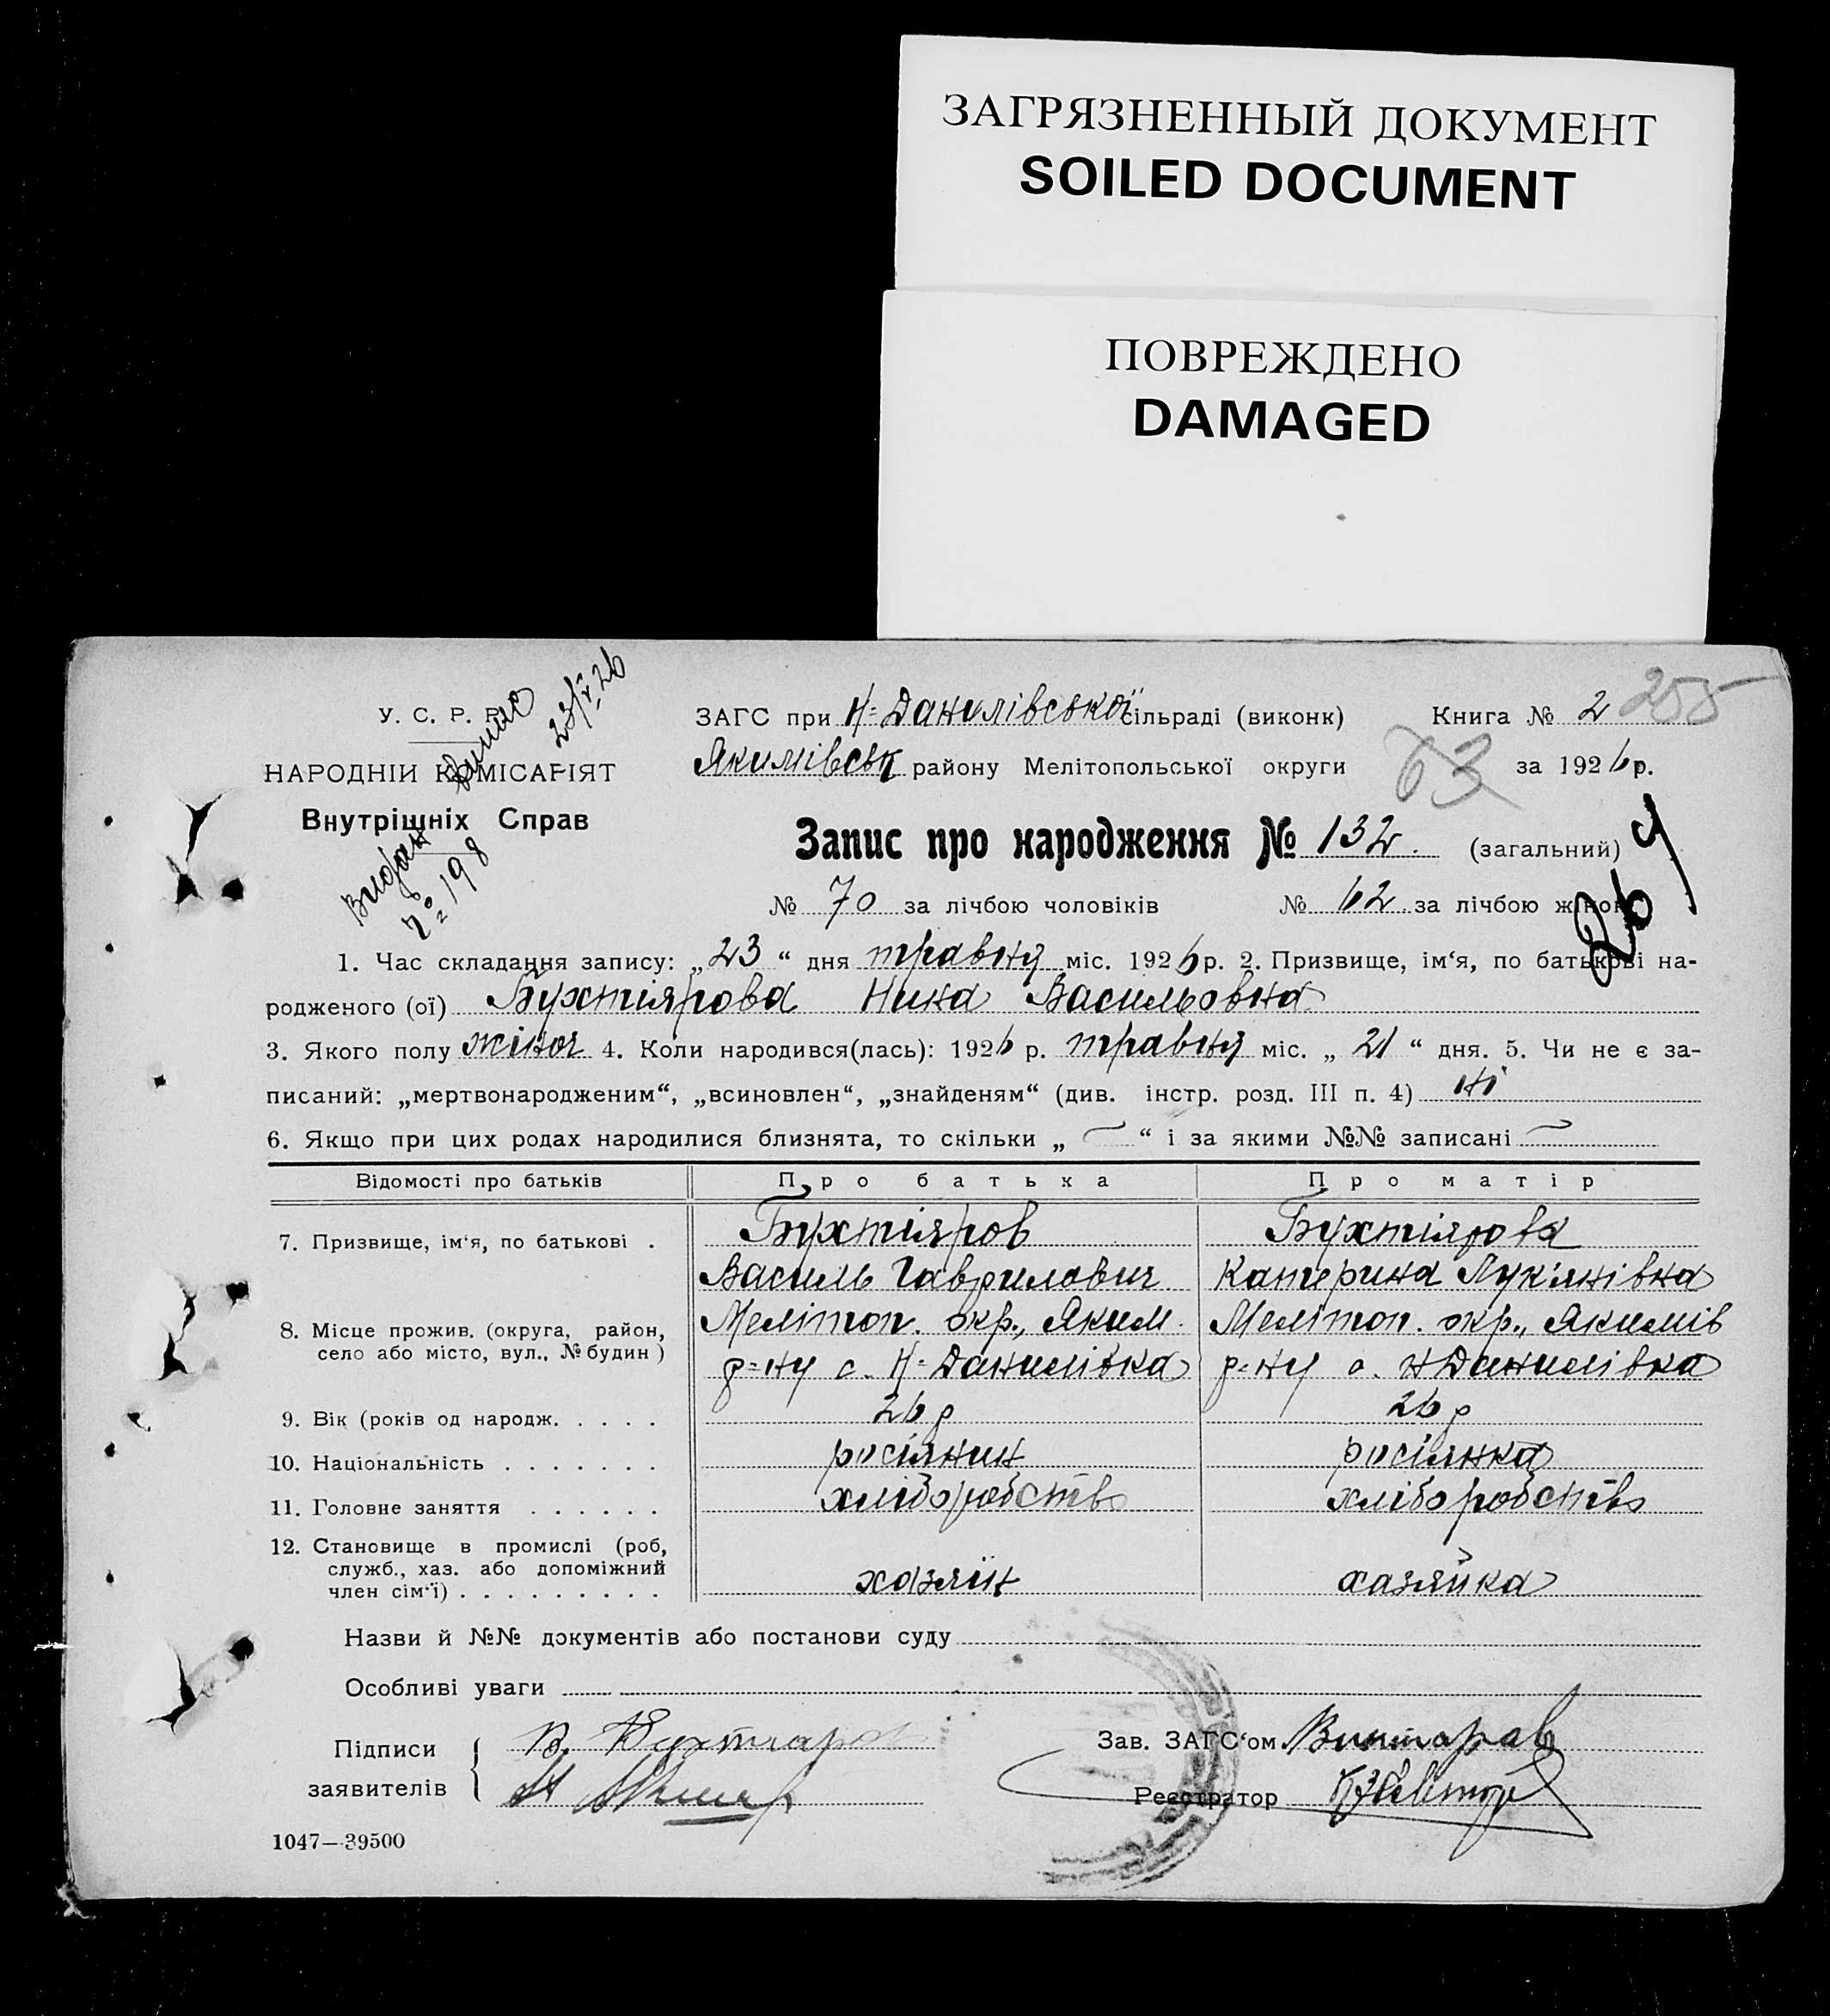 ЗАГРЯЗНЕННЫЙ ДОКУМЕНТ
SOILED DOCUMENT
ПОВРЕЖДЕНО
DAMAGED
У. С. Р. Р.
НАРОДНІЙ КОМІСАРІЯТ
Внутрішніх Справ
Видан
випис
№ 198
23/V-26
ЗАГС при Н=Данилівської сільраді (виконк) Книга № 2 255
Якимівськ району Мелітопольської округи 63 за 1926 р.
Запис про народження № 132. (загальний)
№ 70 за лічбою чоловіків № 62 за лічбою жінок
264
1. Час складання запису: „23“ дня травня міс. 1926 р. 2. Призвище, ім'я, по батькові на-
родженого (ої) Бухтіярова Нина Васильовна
3. Якого полу жіноч 4. Коли народився(лась): 1926 р. травня міс. „21“ дня. 5. Чи не є за-
писаний: „мертвонародженим“, „всиновлен“, „знайденям“ (див. інстр. розд. III п. 4) ні
6. Якщо при цих родах народилися близнята, то скільки „ — “ і за якими №№ записані —
Відомості про батьків Про батька Про матір
7. Призвище, ім'я, по батькові . Бухтіяров Бухтіярова
Василь Гаврилович Катерина Лук'янівна
8. Місце прожив. (округа, район, Мелітоп. окр., Яким. Мелітоп. окр., Якимів
село або місто, вул., № будин) р=ну с. Н=Данилівка р=ну с. Н Данилівка
9. Вік (років од народж. . . . . 26 р 26 р
10. Національність . . . . . . . росіянин росіянка
11. Головне заняття . . . . . . хліборобств хліборобств
12. Становище в промислі (роб,
служб., хаз. або допоміжний
член сім'ї) . . . . . . . . . хазяїн хазяйка
Назви й №№ документів або постанови суду
Особливі уваги
Підписи В. Бухтіаров Зав. ЗАГС'ом
заявителів Реєстратор
1047—39500